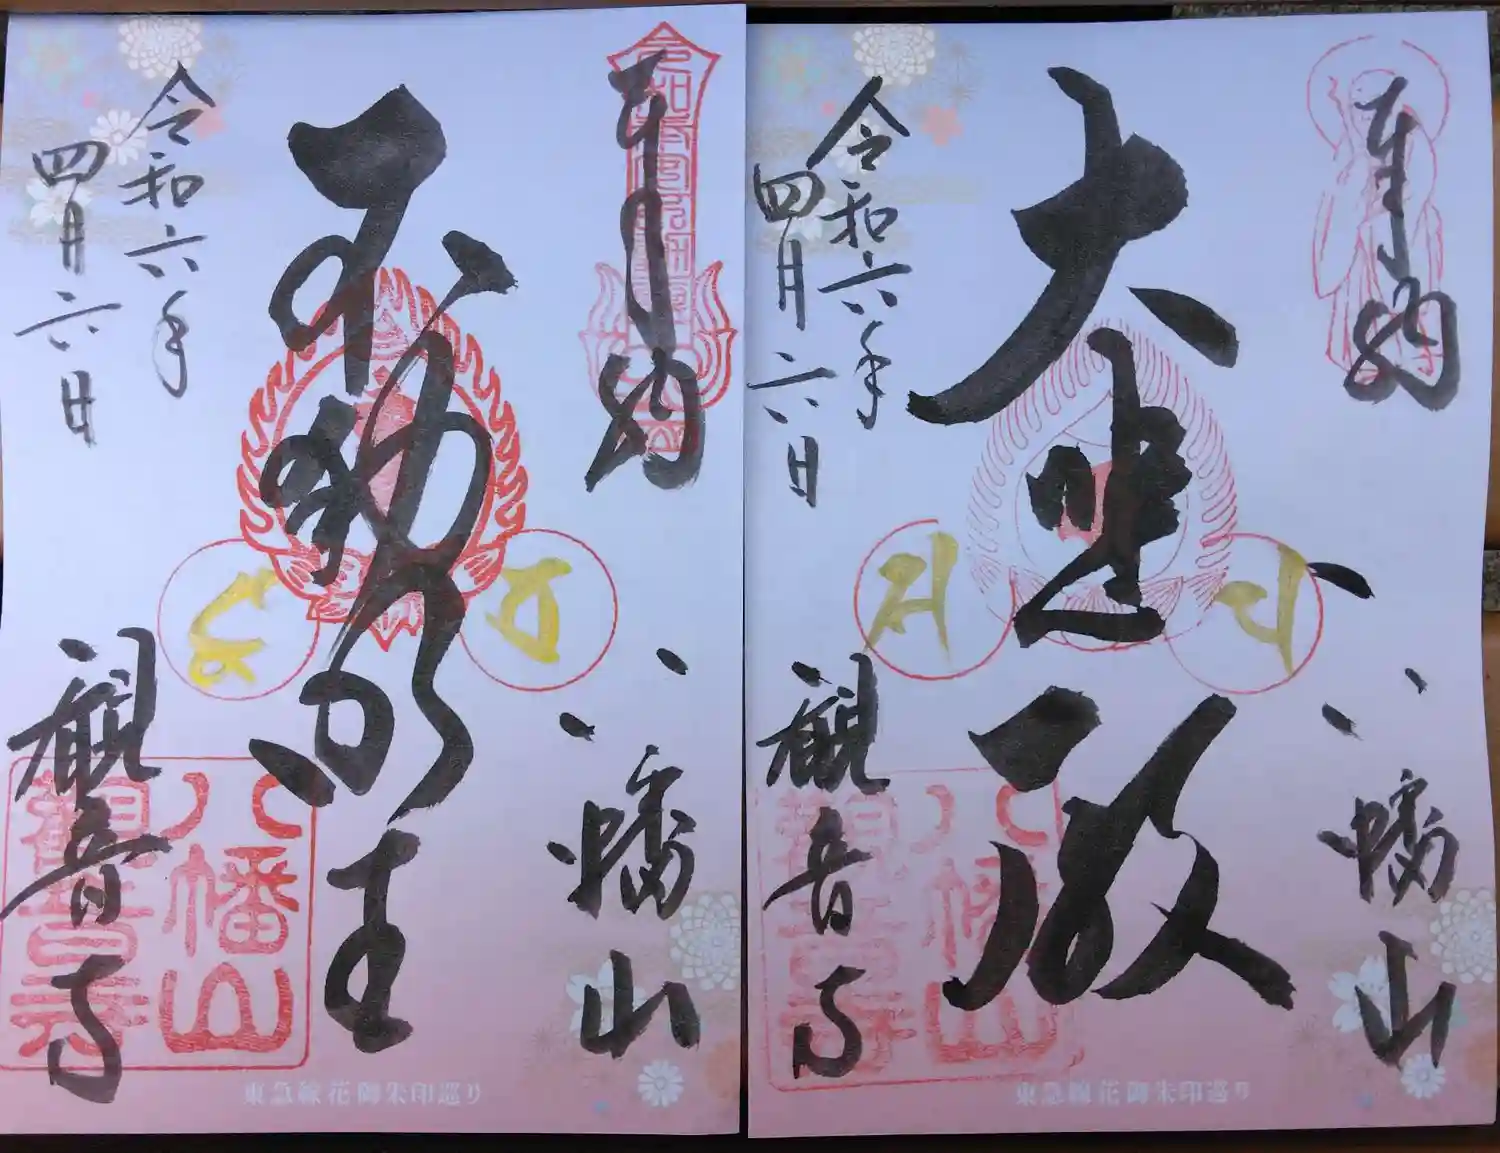 奉納
八幡山
不動明王
令和六年
四月六日
観音寺
八幡山
観音寺
東急線花御朱印巡り
奉納
八幡山
大悲殿
令和六年
四月六日
観音寺
八幡山
観音寺
東急線花御朱印巡り